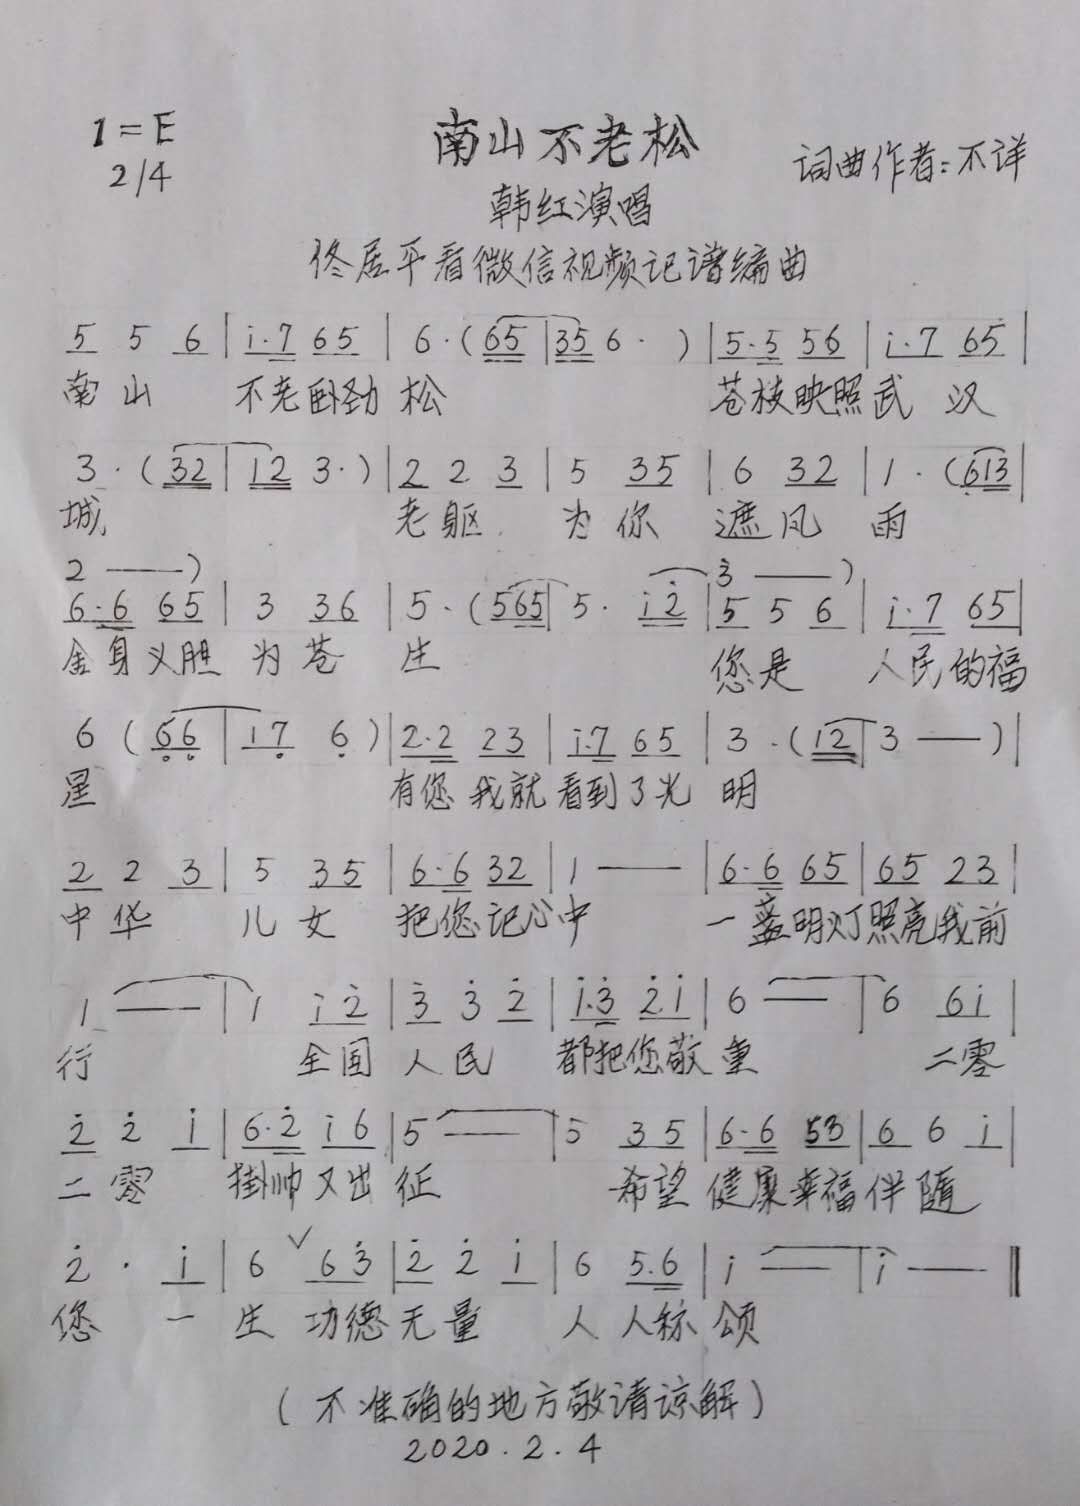 1=E
2/4
南山不老松
词曲作者:不详
韩红演唱
佟居平看微信视频记谱编曲
5 5 6 | i·7 65 | 6·(65 | 35 6·) | 5·5 56 | i·7 65 |
南山 不老卧劲松 苍枝映照武汉
3·(32 | 12 3·) | 2 2 3 | 5 35 | 6 32 | 1·(613 |
城 老躯 为你 遮风 雨
2 —) 3 —)
6·6 65 | 3 36 | 5·(565 | 5· i2 | 5 5 6 | i·7 65 |
金身义胆 为苍 生 您是 人民的福
6 (66 | 17 6) | 2·2 23 | i·7 65 | 3·(12 | 3 —) |
星 有您我就看到了光 明
2 2 3 | 5 35 | 6·6 32 | 1 — | 6·6 65 | 65 23 |
中华 儿女 把您记心中 一盏明灯照亮我前
1 — | 1 i2 | 3 3 2 | i·3 2i | 6 — | 6 6i |
行 全国 人民 都把您敬重 二零
2 2 i | 6·2 i6 | 5 — | 5 35 | 6·6 53 | 6 6 i |
二零 挂帅又出 征 希望 健康幸福伴随
2· i | 6 ✓ 63 | 2 2 i | 6 5.6 | i — | i — ‖
您 一生 功德无量 人人称颂
(不准确的地方敬请谅解)
2020.2.4